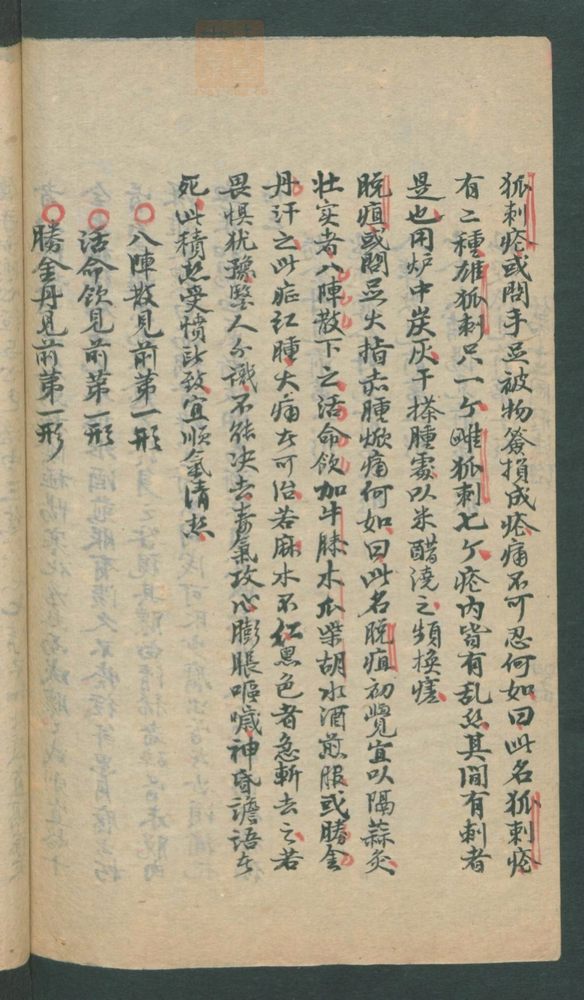 狐刺疮或問手足被物簽損成疮痛不可忍何如曰此名狐刺疮
有二種雄狐刺只一个雌狐刺七个疮内皆有乱丝其間有刺者
是也用炉中炭灰干搽腫處以米醋浇之頻換瘥
脱疽或問足大指赤腫焮痛何如曰此名脱疽初覺宜以隔蒜灸
壮实者八陣散下之活命飲加牛膝木瓜柴胡水酒煎服或勝金
丹汗之此症红腫大痛者可治若麻木不仁黑色者急斬去之若
畏惧犹豫醫人不識不能决去毒氣攻心膨脹嘔噦神昏譫语者
死此積热受憤所致宜順氣清热
八陣散見前第一形
活命飲見前第一形
勝金丹見前第一形